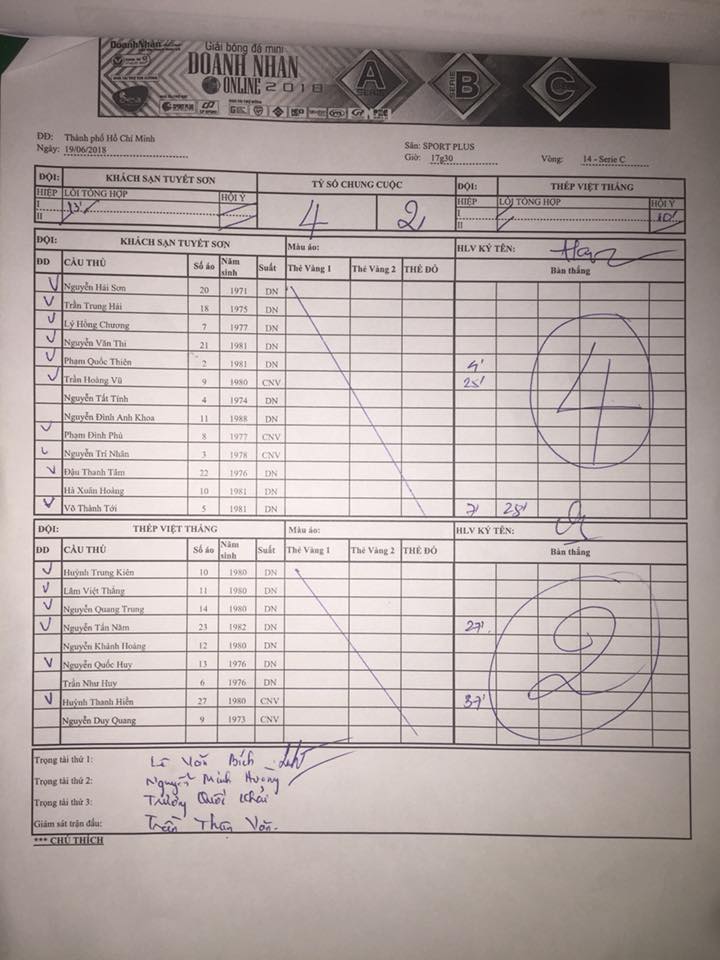 DoanhNhan
Giải bóng đá mini
DOANH NHAN
ONLINE 2018
A
SERIE
B
SERIE
C
SPORT PLUS
ĐĐ: Thành phố Hồ Chí Minh
Ngày: 19/06/2018
Sân: SPORT PLUS
Giờ: 17g30 Vòng: 14 - Serie C
ĐỘI: KHÁCH SẠN TUYẾT SƠN TỶ SỐ CHUNG CUỘC ĐỘI: THÉP VIỆT THẮNG
HIỆP LỖI TỔNG HỢP HỘI Ý 4 2 HIỆP LỖI TỔNG HỢP HỘI Ý
I 13' I
II II 10'
ĐỘI: KHÁCH SẠN TUYẾT SƠN Màu áo: HLV KÝ TÊN:
ĐD CẦU THỦ Số áo Năm sinh Suất Thẻ Vàng 1 Thẻ Vàng 2 THẺ ĐỎ Bàn thắng
Nguyễn Hải Sơn 20 1971 DN
Trần Trung Hải 18 1975 DN
Lý Hồng Chương 7 1977 DN
Nguyễn Văn Thi 21 1981 DN
Phạm Quốc Thiên 2 1981 DN 4'
Trần Hoàng Vũ 9 1980 CNV 25'
Nguyễn Tất Tính 4 1974 DN
Nguyễn Đình Anh Khoa 11 1988 DN
Phạm Đình Phú 8 1977 CNV
Nguyễn Trí Nhân 3 1978 CNV
Đậu Thanh Tâm 22 1976 DN
Hà Xuân Hoàng 10 1981 DN
Võ Thành Tới 5 1981 DN 7' 28'
4
ĐỘI: THÉP VIỆT THẮNG Màu áo: HLV KÝ TÊN:
ĐD CẦU THỦ Số áo Năm sinh Suất Thẻ Vàng 1 Thẻ Vàng 2 THẺ ĐỎ Bàn thắng
Huỳnh Trung Kiên 10 1980 DN
Lâm Việt Thắng 11 1980 DN
Nguyễn Quang Trung 14 1980 DN
Nguyễn Tấn Năm 23 1982 DN 27'
Nguyễn Khánh Hoàng 12 1980 DN
Nguyễn Quốc Huy 13 1976 DN
Trần Như Huy 6 1976 DN
Huỳnh Thanh Hiền 27 1980 CNV 37'
Nguyễn Duy Quang 9 1973 CNV
2
Trọng tài thứ 1: Lê Văn Bích
Trọng tài thứ 2: Nguyễn Minh Hương
Trọng tài thứ 3: Trương Quốc Khải
Giám sát trận đấu: Trần Thận Văn
*** CHÚ THÍCH